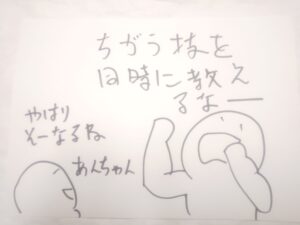 ちがう技を
同時に教え
るなー
やはり
そーなるね
あんちゃん